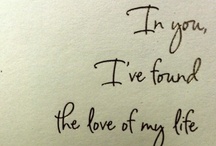 In you,
I've found
the love of my life